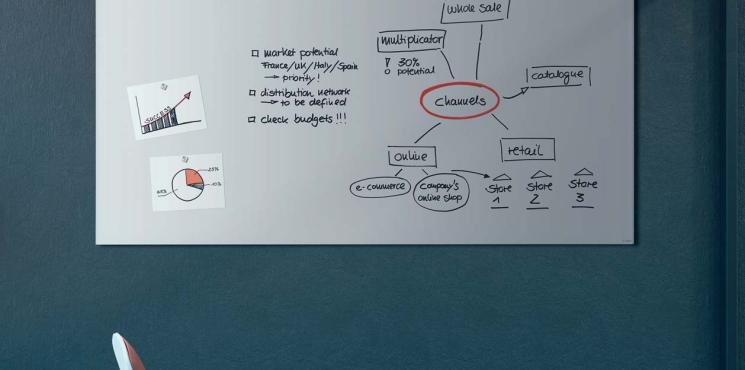 whole sale
multiplicator
30%
potential
catalogue
channels
□ market potential
France/UK/Italy/Spain
→ priority!
□ distribution network
→ to be defined
□ check budgets!!!
success
25%
10%
online
retail
e-commerce
company's
online shop
Store
1
Store
2
Store
3